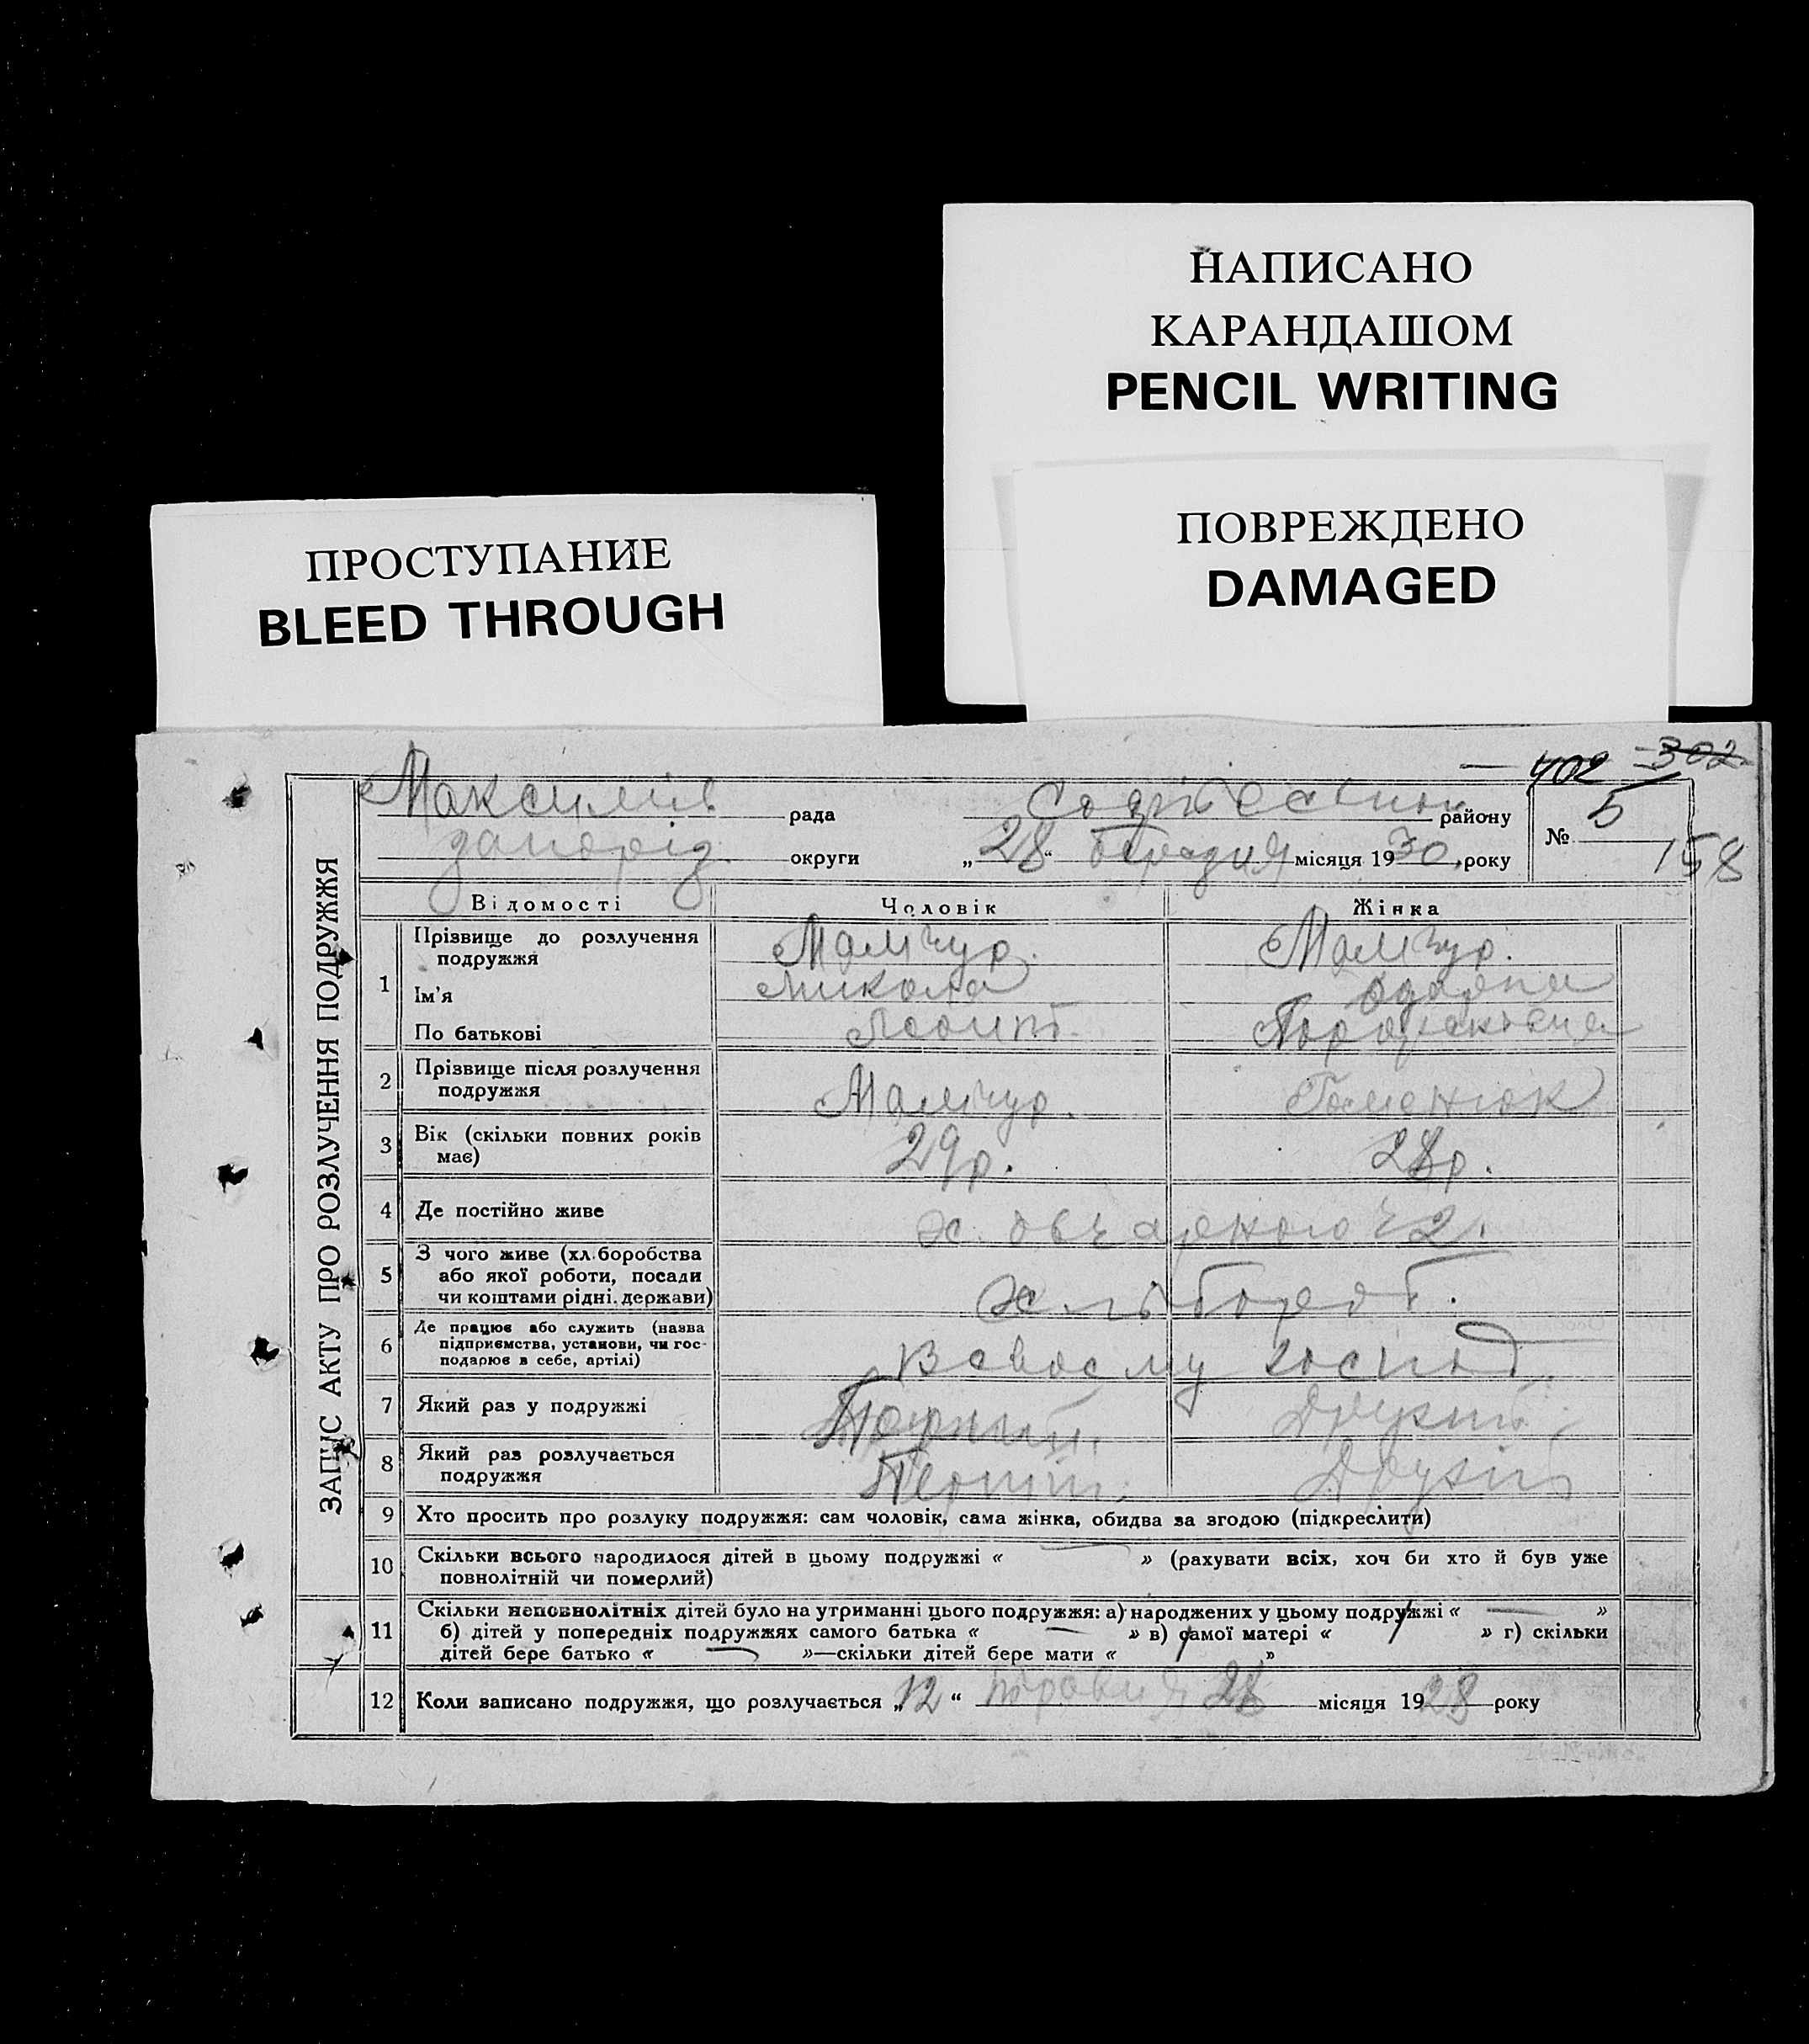 НАПИСАНО
КАРАНДАШОМ
PENCIL WRITING
ПОВРЕЖДЕНО
DAMAGED
ПРОСТУПАНИЕ
BLEED THROUGH
402 302
ЗАПИС АКТУ ПРО РОЗЛУЧЕННЯ ПОДРУЖЖЯ
Максимів рада району
запоріз. округи „28“ місяця 1930, року
№ 5
158
Відомості Чоловік Жінка
1 Прізвище до розлучення подружжя Мамчур. Мамчур.
Ім'я Микола Одарка
По батькові Леонт.
2 Прізвище після розлучення подружжя Мамчур. Гаменюк
3 Вік (скільки повних років має) 29 р. 28 р.
4 Де постійно живе х. 2.
5 З чого живе (хл.боробства або якої роботи, посади чи коштами рідні. держави) Хлібороб.
6 Де працює або служить (назва підприємства, установи, чи господарює в себе, артілі) В своєму господ.
7 Який раз у подружжі Перший. Другий
8 Який раз розлучається подружжя Перший. Другий
9 Хто просить про розлуку подружжя: сам чоловік, сама жінка, обидва за згодою (підкреслити)
10 Скільки всього народилося дітей в цьому подружжі « — » (рахувати всіх, хоч би хто й був уже
повнолітній чи померлий)
11 Скільки неповнолітніх дітей було на утриманні цього подружжя: а) народжених у цьому подружжі « — »
б) дітей у попередніх подружжях самого батька « — » в) самої матері « / » г) скільки
дітей бере батько « — »—скільки дітей бере мати « / »
12 Коли записано подружжя, що розлучається „12“ травня 28 місяця 1928 року